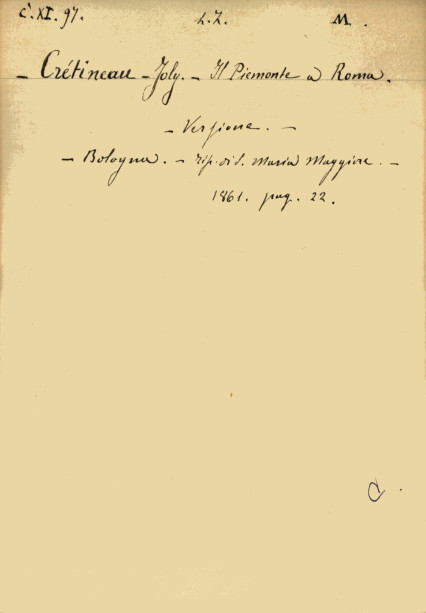 C. XI. 97. L. Z. M.
- Crétineau - Joly. - Il Piemonte a Roma.
- Versione. -
- Bologna. - Tip. di S. Maria Maggiore. -
1861. pag. 22.